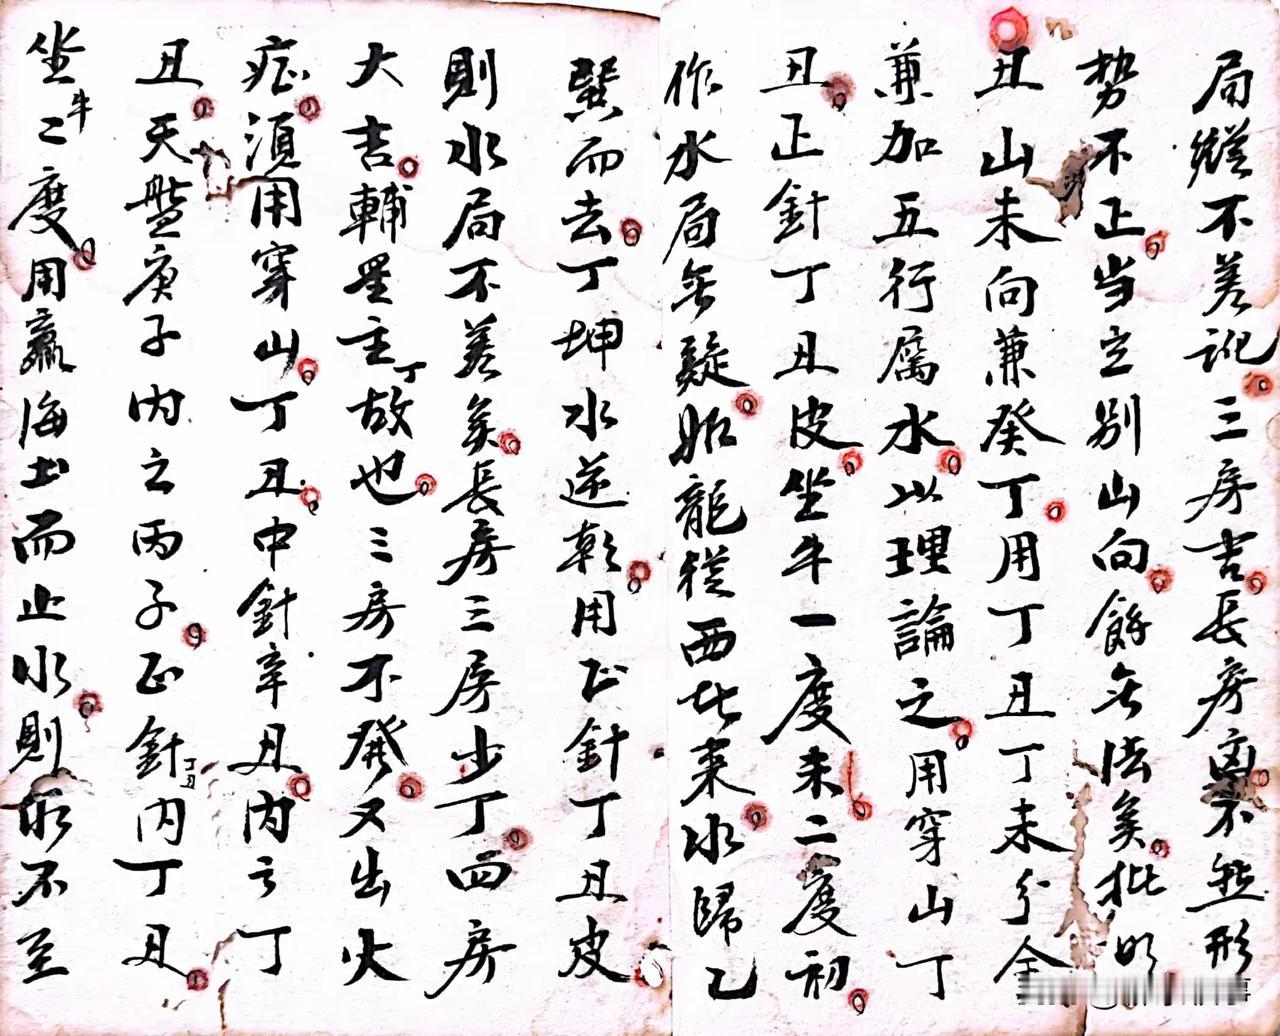 局縱不差訛三房吉長房卤不然形
势不正当立别山向餘無法矣批明
丑山未向兼癸丁用丁丑丁未分金
兼加五行屬水以理論之用穿山丁
丑正針丁丑皮坐牛一度未二度初
作水局無疑如龍從西北来水歸乙
巽而去丁坤水逆乾用正針丁丑皮
則水局不差矣長房三房少丁四房
大吉輔星主丁故也三房不發又出火
症須用穿山丁丑中針辛丑内之丁
丑天盤庚子内之丙子正針丁丑内丁丑
坐牛二度用贏海土而止水則水不至